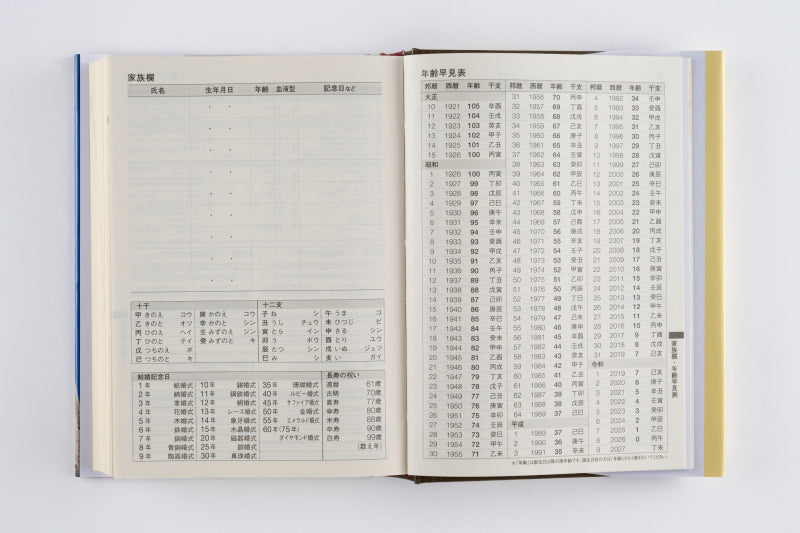 家族欄
氏名 生年月日 年齢 血液型 記念日など
十干
甲 きのえ コウ
乙 きのと オツ
丙 ひのえ ヘイ
丁 ひのと テイ
戊 つちのえ ボ
己 つちのと キ
庚 かのえ コウ
辛 かのと シン
壬 みずのえ ジン
癸 みずのと キ
十二支
子 ね シ
丑 うし チュウ
寅 とら イン
卯 う ボウ
辰 たつ シン
巳 み シ
午 うま ゴ
未 ひつじ ビ
申 さる シン
酉 とり ユウ
戌 いぬ ジュツ
亥 い ガイ
結婚記念日
1年 紙婚式
2年 綿婚式
3年 革婚式
4年 花婚式
5年 木婚式
6年 鉄婚式
7年 銅婚式
8年 青銅婚式
9年 陶器婚式
10年 錫婚式
11年 鋼鉄婚式
12年 絹婚式
13年 レース婚式
14年 象牙婚式
15年 水晶婚式
20年 磁器婚式
25年 銀婚式
30年 真珠婚式
35年 珊瑚婚式
40年 ルビー婚式
45年 サファイア婚式
50年 金婚式
55年 エメラルド婚式
60年(75年)
ダイヤモンド婚式
長寿の祝い
還暦 61歳
古稀 70歳
喜寿 77歳
傘寿 80歳
米寿 88歳
卒寿 90歳
白寿 99歳
(数え年)
年齢早見表
邦暦 西暦 年齢 干支
大正
10 1921 105 辛酉
11 1922 104 壬戌
12 1923 103 癸亥
13 1924 102 甲子
14 1925 101 乙丑
15 1926 100 丙寅
昭和
1 1926 100 丙寅
2 1927 99 丁卯
3 1928 98 戊辰
4 1929 97 己巳
5 1930 96 庚午
6 1931 95 辛未
7 1932 94 壬申
8 1933 93 癸酉
9 1934 92 甲戌
10 1935 91 乙亥
11 1936 90 丙子
12 1937 89 丁丑
13 1938 88 戊寅
14 1939 87 己卯
15 1940 86 庚辰
16 1941 85 辛巳
17 1942 84 壬午
18 1943 83 癸未
19 1944 82 甲申
20 1945 81 乙酉
21 1946 80 丙戌
22 1947 79 丁亥
23 1948 78 戊子
24 1949 77 己丑
25 1950 76 庚寅
26 1951 75 辛卯
27 1952 74 壬辰
28 1953 73 癸巳
29 1954 72 甲午
30 1955 71 乙未
邦暦 西暦 年齢 干支
31 1956 70 丙申
32 1957 69 丁酉
33 1958 68 戊戌
34 1959 67 己亥
35 1960 66 庚子
36 1961 65 辛丑
37 1962 64 壬寅
38 1963 63 癸卯
39 1964 62 甲辰
40 1965 61 乙巳
41 1966 60 丙午
42 1967 59 丁未
43 1968 58 戊申
44 1969 57 己酉
45 1970 56 庚戌
46 1971 55 辛亥
47 1972 54 壬子
48 1973 53 癸丑
49 1974 52 甲寅
50 1975 51 乙卯
51 1976 50 丙辰
52 1977 49 丁巳
53 1978 48 戊午
54 1979 47 己未
55 1980 46 庚申
56 1981 45 辛酉
57 1982 44 壬戌
58 1983 43 癸亥
59 1984 42 甲子
60 1985 41 乙丑
61 1986 40 丙寅
62 1987 39 丁卯
63 1988 38 戊辰
64 1989 37 己巳
平成
1 1989 37 己巳
2 1990 36 庚午
3 1991 35 辛未
邦暦 西暦 年齢 干支
4 1992 34 壬申
5 1993 33 癸酉
6 1994 32 甲戌
7 1995 31 乙亥
8 1996 30 丙子
9 1997 29 丁丑
10 1998 28 戊寅
11 1999 27 己卯
12 2000 26 庚辰
13 2001 25 辛巳
14 2002 24 壬午
15 2003 23 癸未
16 2004 22 甲申
17 2005 21 乙酉
18 2006 20 丙戌
19 2007 19 丁亥
20 2008 18 戊子
21 2009 17 己丑
22 2010 16 庚寅
23 2011 15 辛卯
24 2012 14 壬辰
25 2013 13 癸巳
26 2014 12 甲午
27 2015 11 乙未
28 2016 10 丙申
29 2017 9 丁酉
30 2018 8 戊戌
31 2019 7 己亥
令和
1 2019 7 己亥
2 2020 6 庚子
3 2021 5 辛丑
4 2022 4 壬寅
5 2023 3 癸卯
6 2024 2 甲辰
7 2025 1 乙巳
8 2026 0 丙午
9 2027 丁未
家族欄・年齢早見表